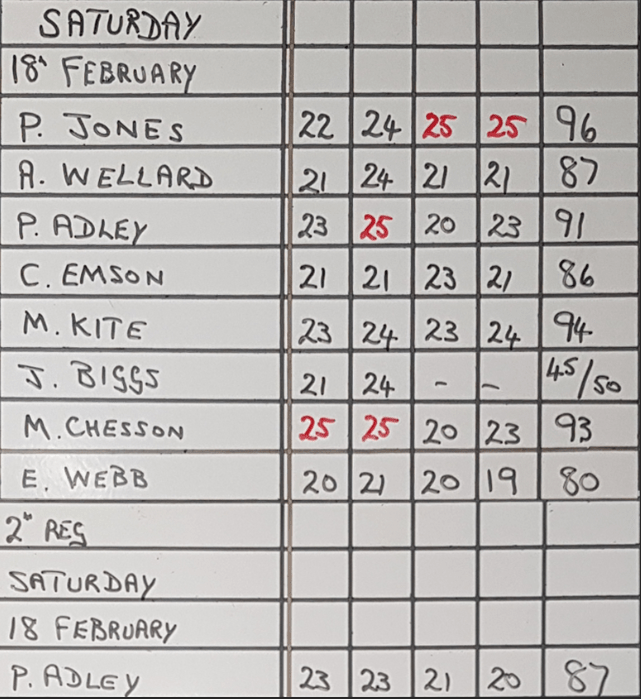 SATURDAY
18th FEBRUARY
P. JONES 22 24 25 25 96
A. WELLARD 21 24 21 21 87
P. ADLEY 23 25 20 23 91
C. EMSON 21 21 23 21 86
M. KITE 23 24 23 24 94
J. BIGGS 21 24 - - 45/50
M. CHESSON 25 25 20 23 93
E. WEBB 20 21 20 19 80
2nd REG
SATURDAY
18 FEBRUARY
P. ADLEY 23 23 21 20 87